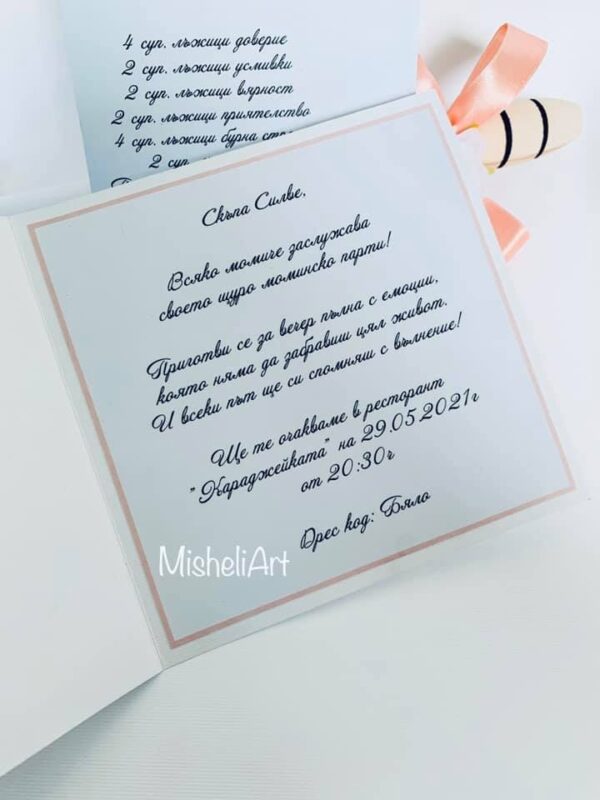 4 суп. лъжици доверие
2 суп. лъжици усмивки
2 суп. лъжици вярност
2 суп. лъжици приятелство
4 суп. лъжици бурна
2 суп.
Скъпа Силве,
Всяко момиче заслужава
своето щуро моминско парти!
Приготви се за вечер пълна с емоции,
която няма да забравиш цял живот.
И всеки път ще си спомняш с вълнение!
Ще те очакваме в ресторант
"Караджейката" на 29.05.2021г
от 20:30ч
Дрес код: Бяло
MisheliArt